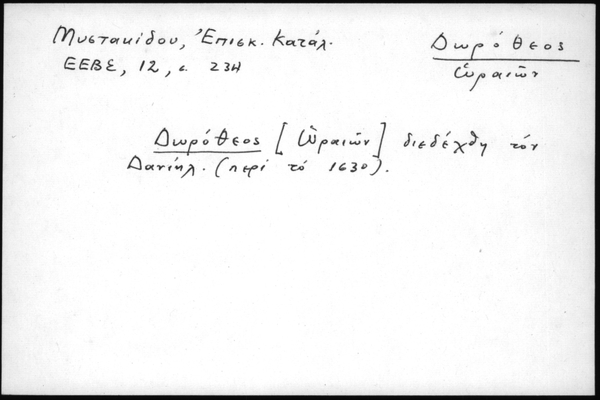 Μυστακίδου, Ἐπισκ. Κατάλ.
ΕΕΒΣ, 12, σ. 234
Δωρόθεος
Ὠραιῶν
Δωρόθεος [Ὠραιῶν] διεδέχθη τόν
Δανιήλ. (περί τό 1630).